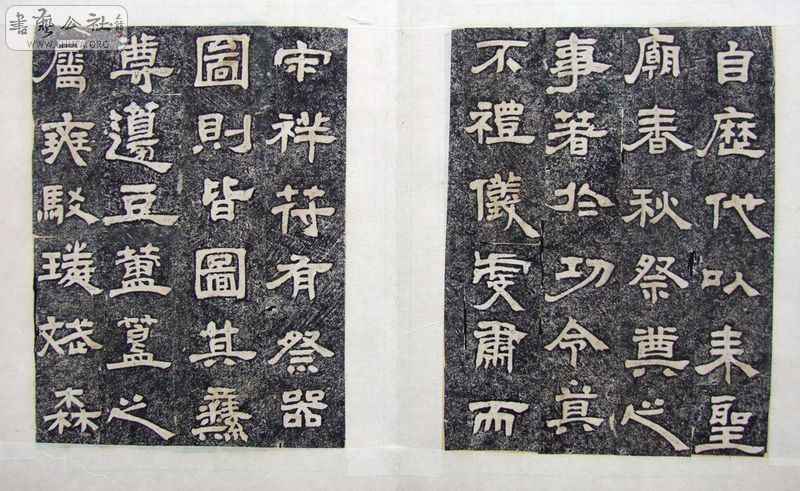 自歷代以来聖
廟春秋祭奠之
事著於功令莫
不禮儀虔肅而
宋祥符有祭器
圖則皆圖其彝
尊邊豆簠簋之
屬爽駁璘斌森
書藝公社
WWW.SHUFA.ORG